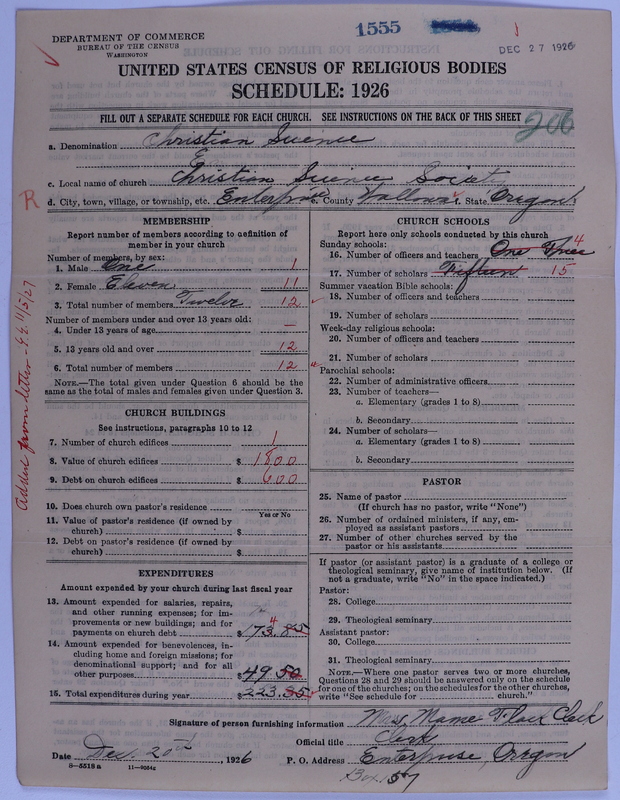 1555
DEPARTMENT OF COMMERCE
BUREAU OF THE CENSUS
WASHINGTON
DEC 27 1926
UNITED STATES CENSUS OF RELIGIOUS BODIES
SCHEDULE: 1926
FILL OUT A SEPARATE SCHEDULE FOR EACH CHURCH. SEE INSTRUCTIONS ON THE BACK OF THIS SHEET
206
a. Denomination Christian Science
c. Local name of church Christian Science Society
d. City, town, village, or township, etc. Enterprise e. County Wallowa f. State Oregon
R
Added from letter - 11/5/27
MEMBERSHIP
Report number of members according to definition of
member in your church
Number of members, by sex:
1. Male One 1
2. Female Eleven 11
3. Total number of members Twelve 12
Number of members under and over 13 years old:
4. Under 13 years of age —
5. 13 years old and over 12
6. Total number of members 12
NOTE.—The total given under Question 6 should be the
same as the total of males and females given under Question 3.
CHURCH BUILDINGS
See instructions, paragraphs 10 to 12
7. Number of church edifices 1
8. Value of church edifices $ 1800
9. Debt on church edifices $ 600
10. Does church own pastor's residence
Yes or No
11. Value of pastor's residence (if owned by
church) $
12. Debt on pastor's residence (if owned by
church) $
EXPENDITURES
Amount expended by your church during last fiscal year
13. Amount expended for salaries, repairs,
and other running expenses; for im-
provements or new buildings; and for
payments on church debt $ 173.85 4
14. Amount expended for benevolences, in-
cluding home and foreign missions; for
denominational support; and for all
other purposes $ 49.50
15. Total expenditures during year $ 223.35
CHURCH SCHOOLS
Report here only schools conducted by this church
Sunday schools:
16. Number of officers and teachers One Three 4
17. Number of scholars Fifteen 15
Summer vacation Bible schools:
18. Number of officers and teachers
19. Number of scholars
Week-day religious schools:
20. Number of officers and teachers
21. Number of scholars
Parochial schools:
22. Number of administrative officers
23. Number of teachers—
a. Elementary (grades 1 to 8)
b. Secondary
24. Number of scholars—
a. Elementary (grades 1 to 8)
b. Secondary
PASTOR
25. Name of pastor
(If church has no pastor, write "None")
26. Number of ordained ministers, if any, em-
ployed as assistant pastors
27. Number of other churches served by the
pastor or his assistants
If pastor (or assistant pastor) is a graduate of a college or
theological seminary, give name of institution below. (If
not a graduate, write "No" in the space indicated.)
Pastor:
28. College
29. Theological seminary
Assistant pastor:
30. College
31. Theological seminary
NOTE.—Where one pastor serves two or more churches,
Questions 28 and 29 should be answered only on the schedule
for one of the churches; on the schedules for the other churches,
write "See schedule for church."
Signature of person furnishing information Mrs. Mame Clerk
Official title Clerk
Date Dec. 20th, 1926 P. O. Address Enterprise, Oregon
8—5518 a 11—9034c
Box 567